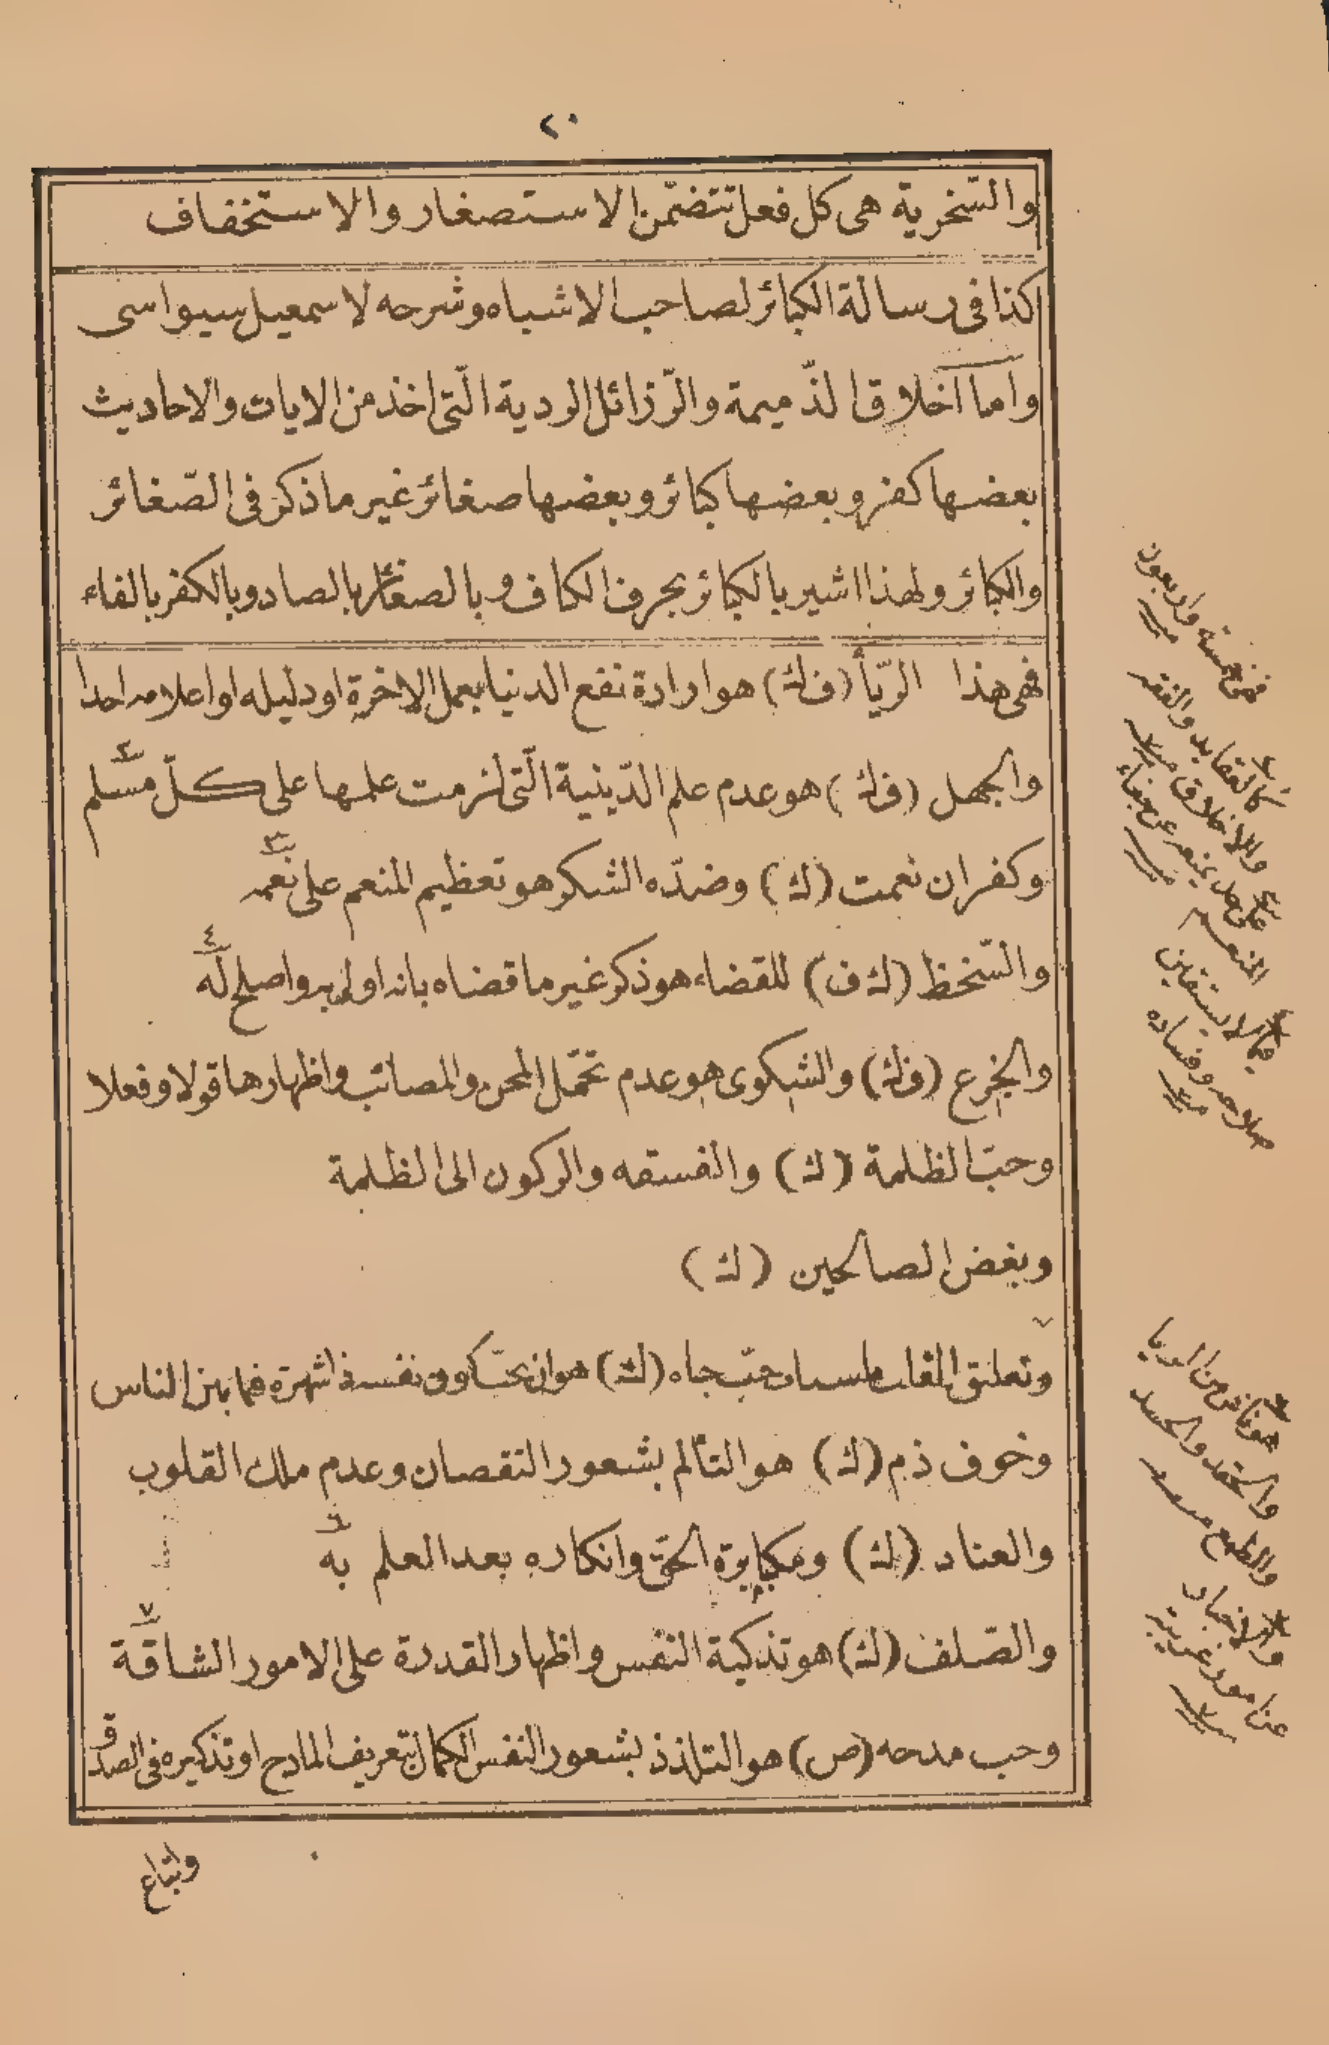 ٢٠
والسّخرية هى كل فعل تتضمّن الاستصغار والاستخفاف
كذا فى رسالة الكبائر لصاحب الاشباه وشرحه لاسمعيل سيواسى
واما اخلاق الذّميمة والرّزائل الردية الّتى اخذ من الايات والاحاديث
بعضها كفر وبعضها كبائر وبعضها صغائر غير ما ذكر فى الصّغائر
والكبائر ولهذا اشير بالكبائر بحرف الكاف وبالصغائر بالصاد وبالكفر بالفاء
فهى هذا الرّيأ (ف ك) هو ارادة نفع الدنيا بعمل الاخرة او دليله او اعلامه احدا
والجهل (ف ك) هو عدم علم الدّينية الّتى لزمت علمها على كلّ مسلم ٢
وكفران نعمت (ك) وضدّه الشكر هو تعظيم المنعم على نعمه ٣
والسّخظ (ك ف) للقضاء هو ذكر غير ما قضاه بانه اولى به واصلح له ٤
والجزع (ف ك) والشكوى هو عدم تحمّل المحن والمصائب واظهارها قولا وفعلا
وحبّ الظلمة (ك) والفسقه والركون الى الظلمة
وبغض الصالحين (ك)
وتعليق القلب حبّ جاه (ك) هو ان يحبّ كون نفسه ذا شهرة فيما بين الناس
وخوف ذم (ك) هو التألم بشعور النقصان وعدم ملك القلوب
والعناد (ك) ومكابرة الحق وانكاره بعد العلم به ٦
والصّلف (ك) هو تذكية النفس واظهار القدرة على الامور الشاقة ٧
وحب مدحه (ص) هو التلذذ بشعور النفس الكمال بتعريف المادح او تذكيره فى الصدق
واتباع
فهى خمسة واربعون
كالعقايد والفقه
والاخلاق
على حد يمنعه عن جفاء
المنعم
فيما لا يستقين
صلاحه وفساده
هو ناش من الريا
والحقد والحسد
والطمع
والاخبار
عن امور غريبة